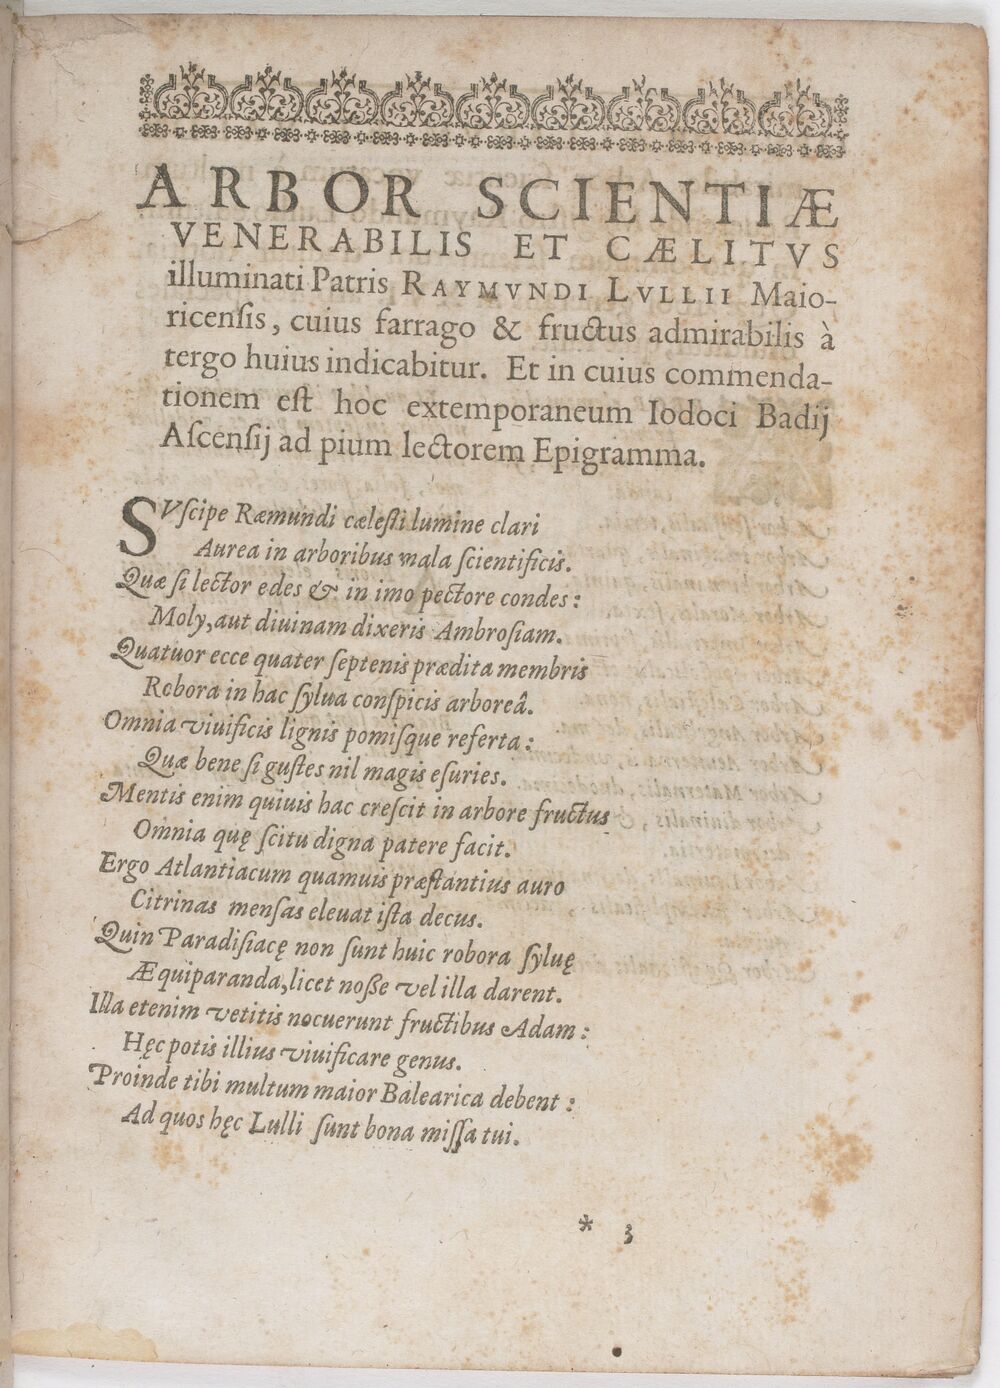 ARBOR SCIENTIÆ
VENERABILIS ET CÆLITVS
illuminati Patris RAYMVNDI LVLLII Maio-
ricenſis, cuius farrago & fructus admirabilis à
tergo huius indicabitur. Et in cuius commenda-
tionem eſt hoc extemporaneum Iodoci Badij
Aſcenſij ad pium lectorem Epigramma.
SVſcipe Ræmundi cæleſti lumine clari
Aurea in arboribus mala ſcientificis.
Quæ ſi lector edes & in imo pectore condes:
Moly, aut diuinam dixeris Ambroſiam.
Quatuor ecce quater ſeptenis prædita membris
Robora in hac ſylua conſpicis arboreâ.
Omnia viuificis lignis pomiſque referta:
Quæ bene ſi guſtes nil magis eſuries.
Mentis enim quiuis hac creſcit in arbore fructus
Omnia quę ſcitu digna patere facit.
Ergo Atlantiacum quamuis præſtantius auro
Citrinas menſas eleuat iſta decus.
Quin Paradiſiacę non ſunt huic robora ſyluę
Æquiparanda, licet noſſe vel illa darent.
Illa etenim vetitis nocuerunt fructibus Adam:
Hęc potis illius viuificare genus.
Proinde tibi multum maior Balearica debent:
Ad quos hęc Lulli ſunt bona miſſa tui.
* 3